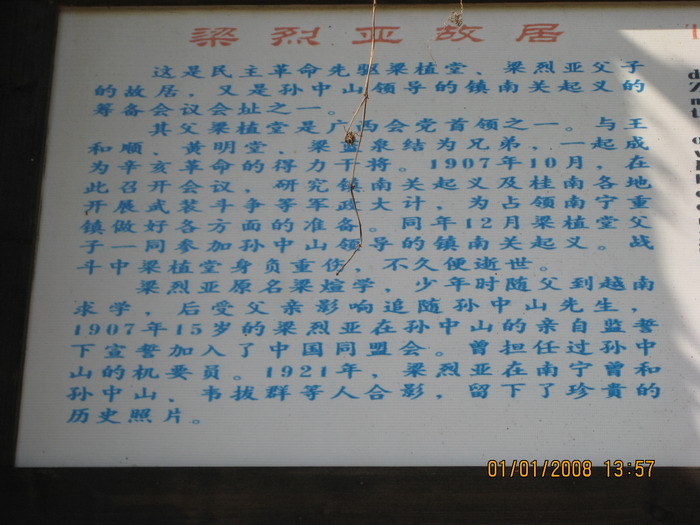 梁烈亚故居
这是民主革命先驱梁植堂、梁烈亚父子
的故居，又是孙中山领导的镇南关起义的
筹备会议会址之一。
其父梁植堂是广西会党首领之一。与王
和顺、黄明堂、梁蓝泉结为兄弟，一起成
为辛亥革命的得力干将。1907年10月，在
此召开会议，研究镇南关起义及桂南各地
开展武装斗争等军政大计，为占领南宁重
镇做好各方面的准备。同年12月梁植堂父
子一同参加孙中山领导的镇南关起义。战
斗中梁植堂身负重伤，不久便逝世。
梁烈亚原名梁煊学，少年时随父到越南
求学，后受父亲影响追随孙中山先生，
1907年15岁的梁烈亚在孙中山的亲自监誓
下宣誓加入了中国同盟会。曾担任过孙中
山的机要员。1921年，梁烈亚在南宁曾和
孙中山、韦拔群等人合影，留下了珍貴的
历史照片。
01/01/2008 13:57